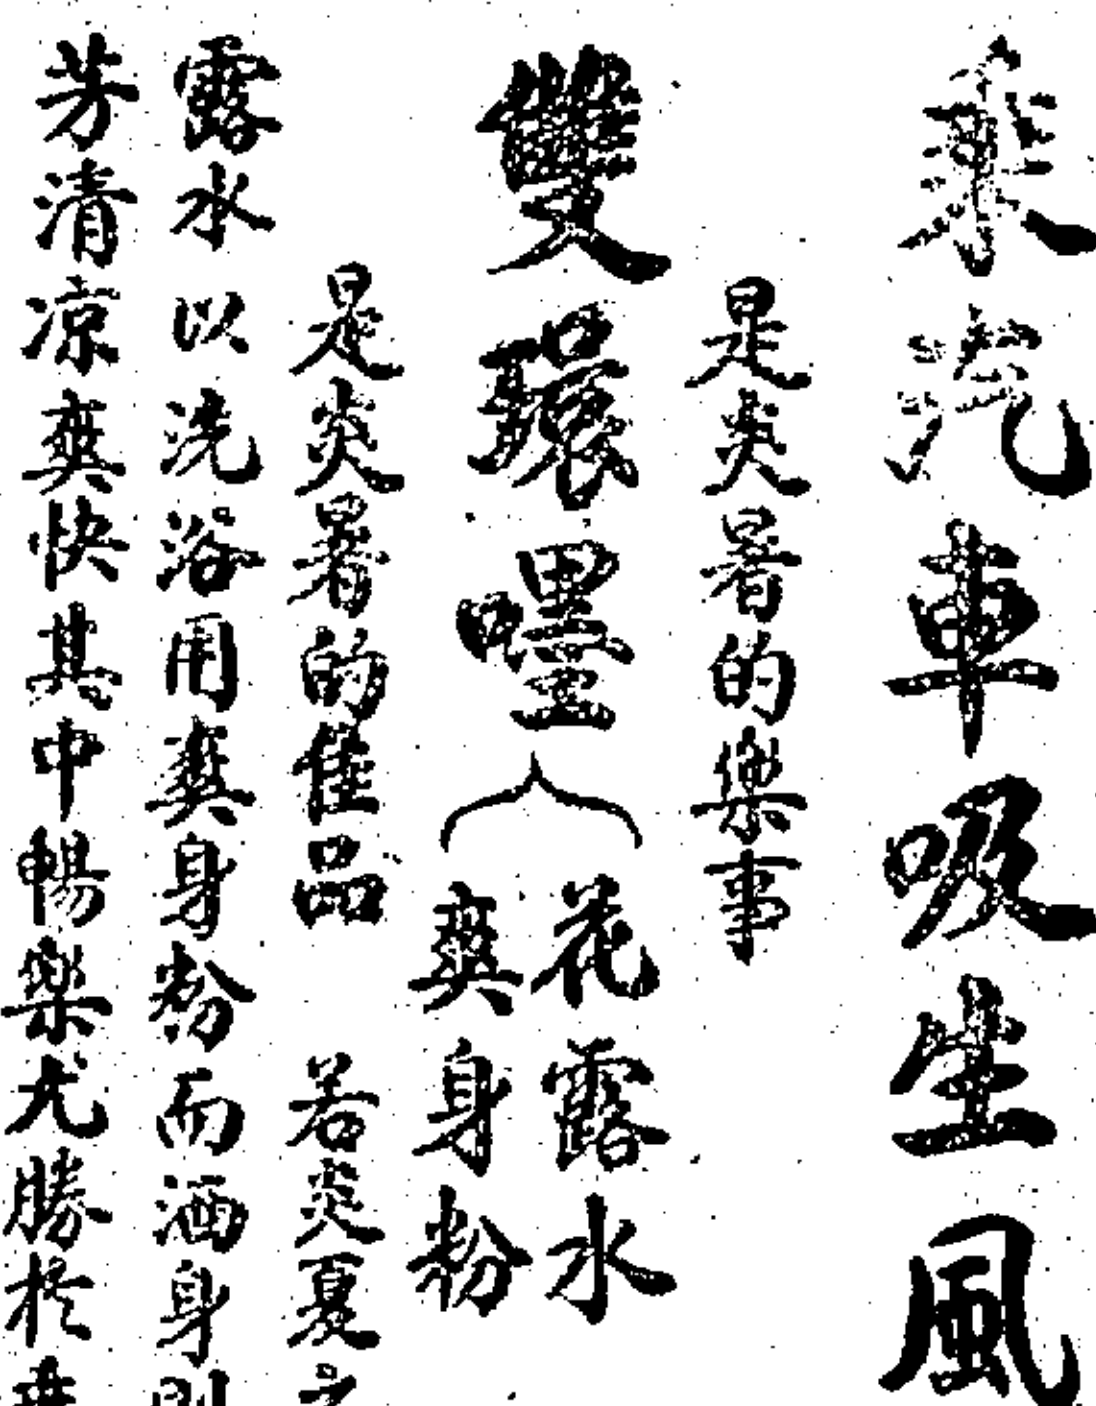 乘汽車吸生風
是炎暑的樂事
雙環嘿
花露水
爽身粉
是炎暑的佳品
若炎夏之
露水以洗浴用爽身粉而洒身則
芳清凉爽快其中暢樂尤勝於乘